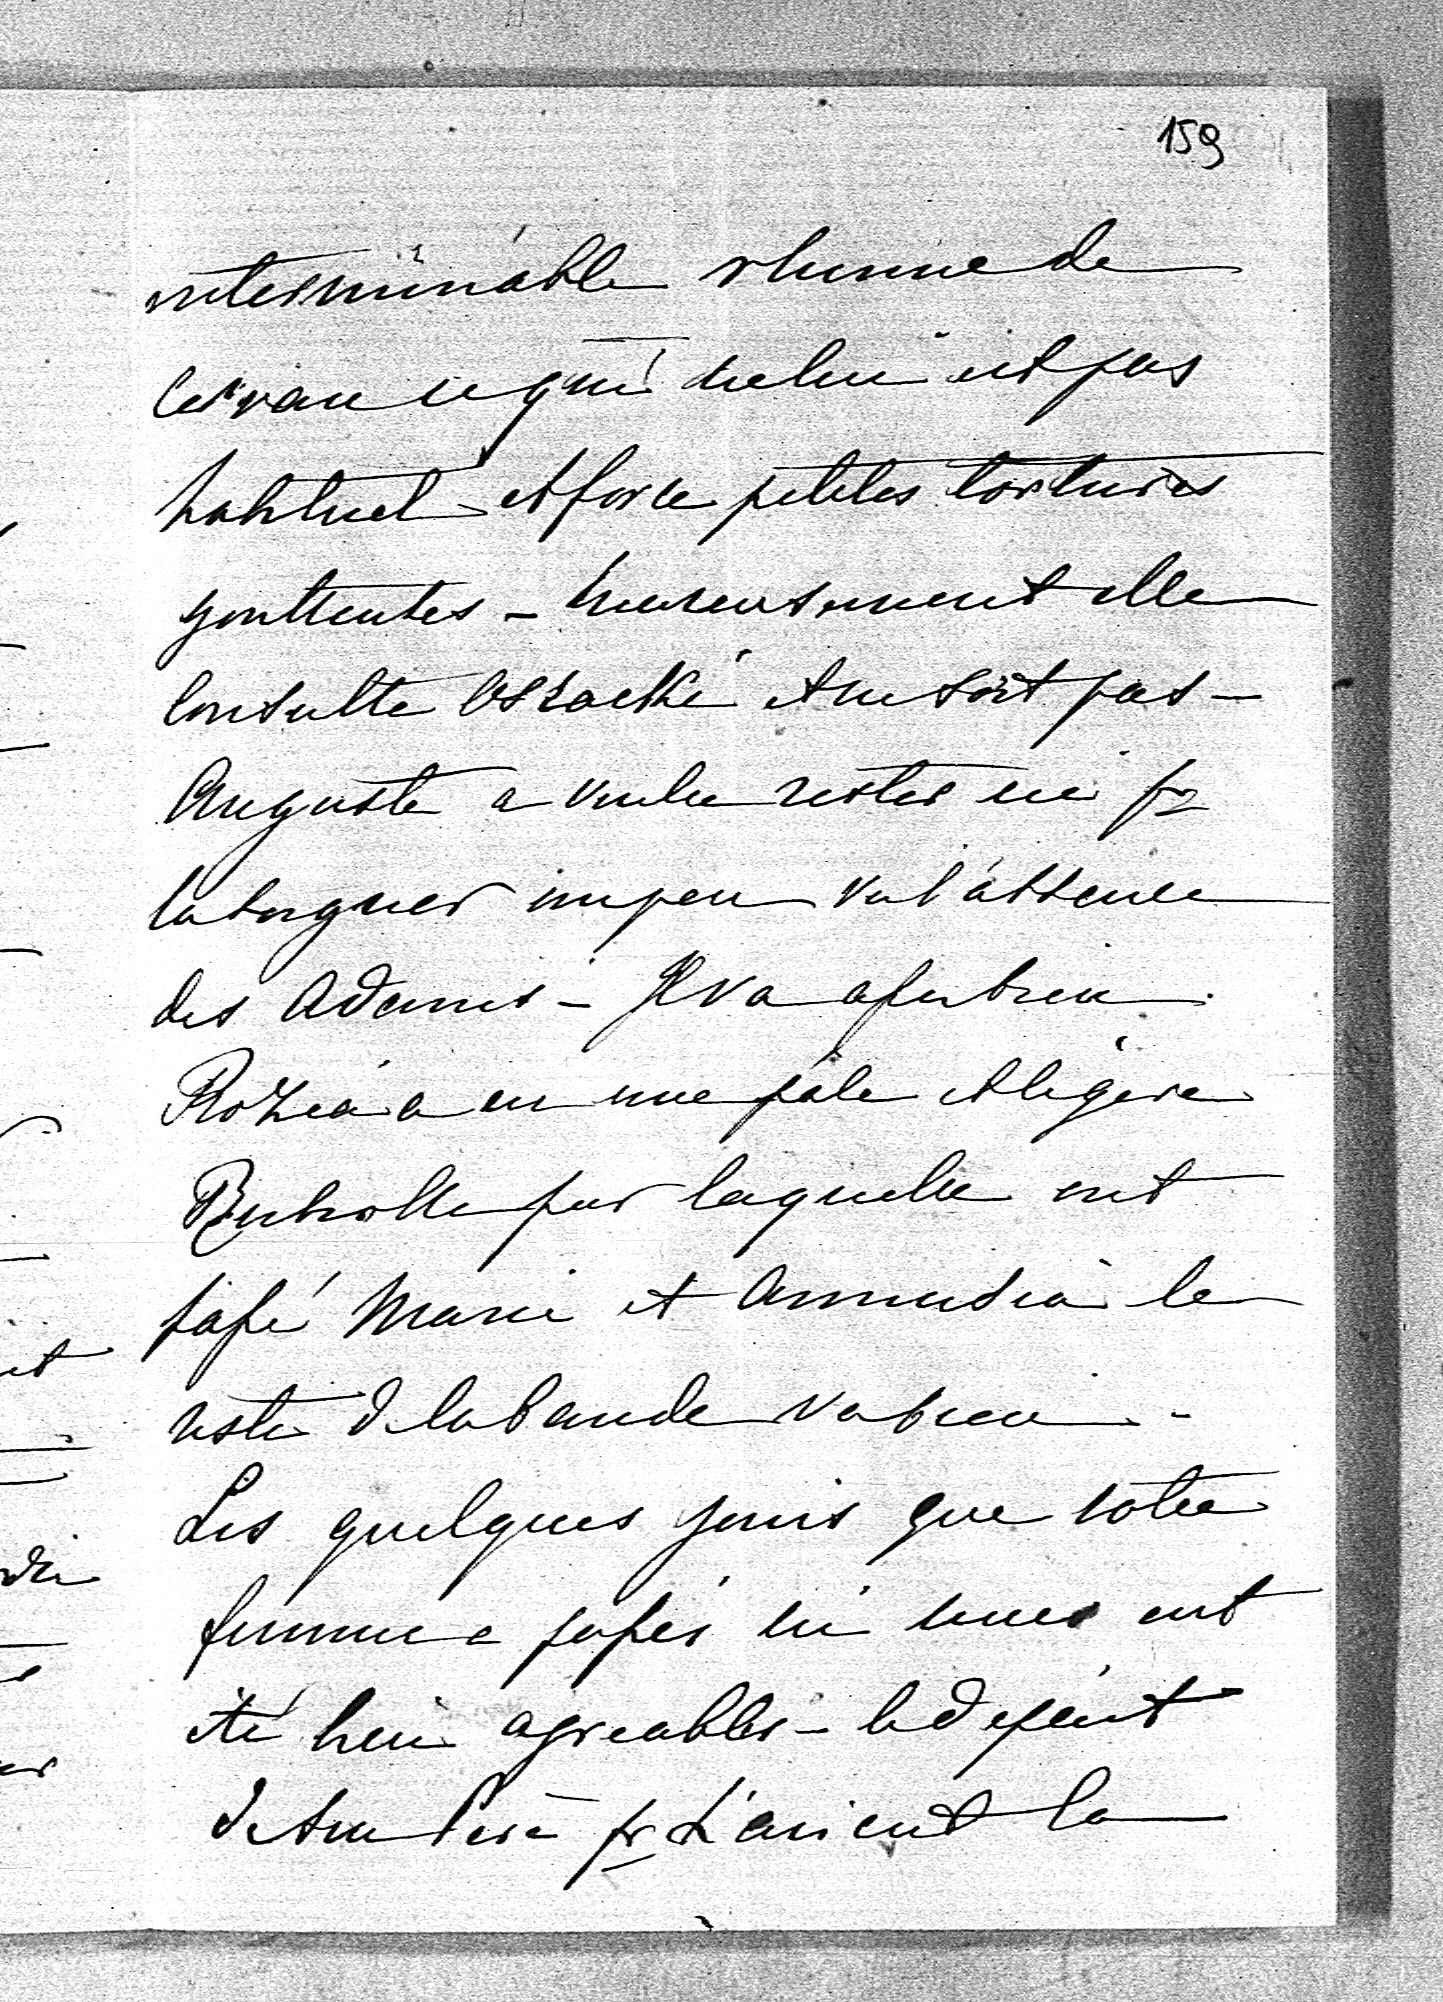 159
interminable rhume de
cerveau ce qui ne lui est pas
habituel et force petites tortures
goutteuses – heureusement elle
consulte Oszacki et ne sort pas –
Auguste a voulu rester ici pr
la soigner un peu vu l'absence
des Adams – Il va assez bien.
Rozia a eu une pâle et légère
par laquelle ont
passé Marie et Amnusia le
reste de la bande va bien –
Les quelques jours que votre
femme a passés ici nous ont
été bien agréables – le départ
de son Père pr L'orient la